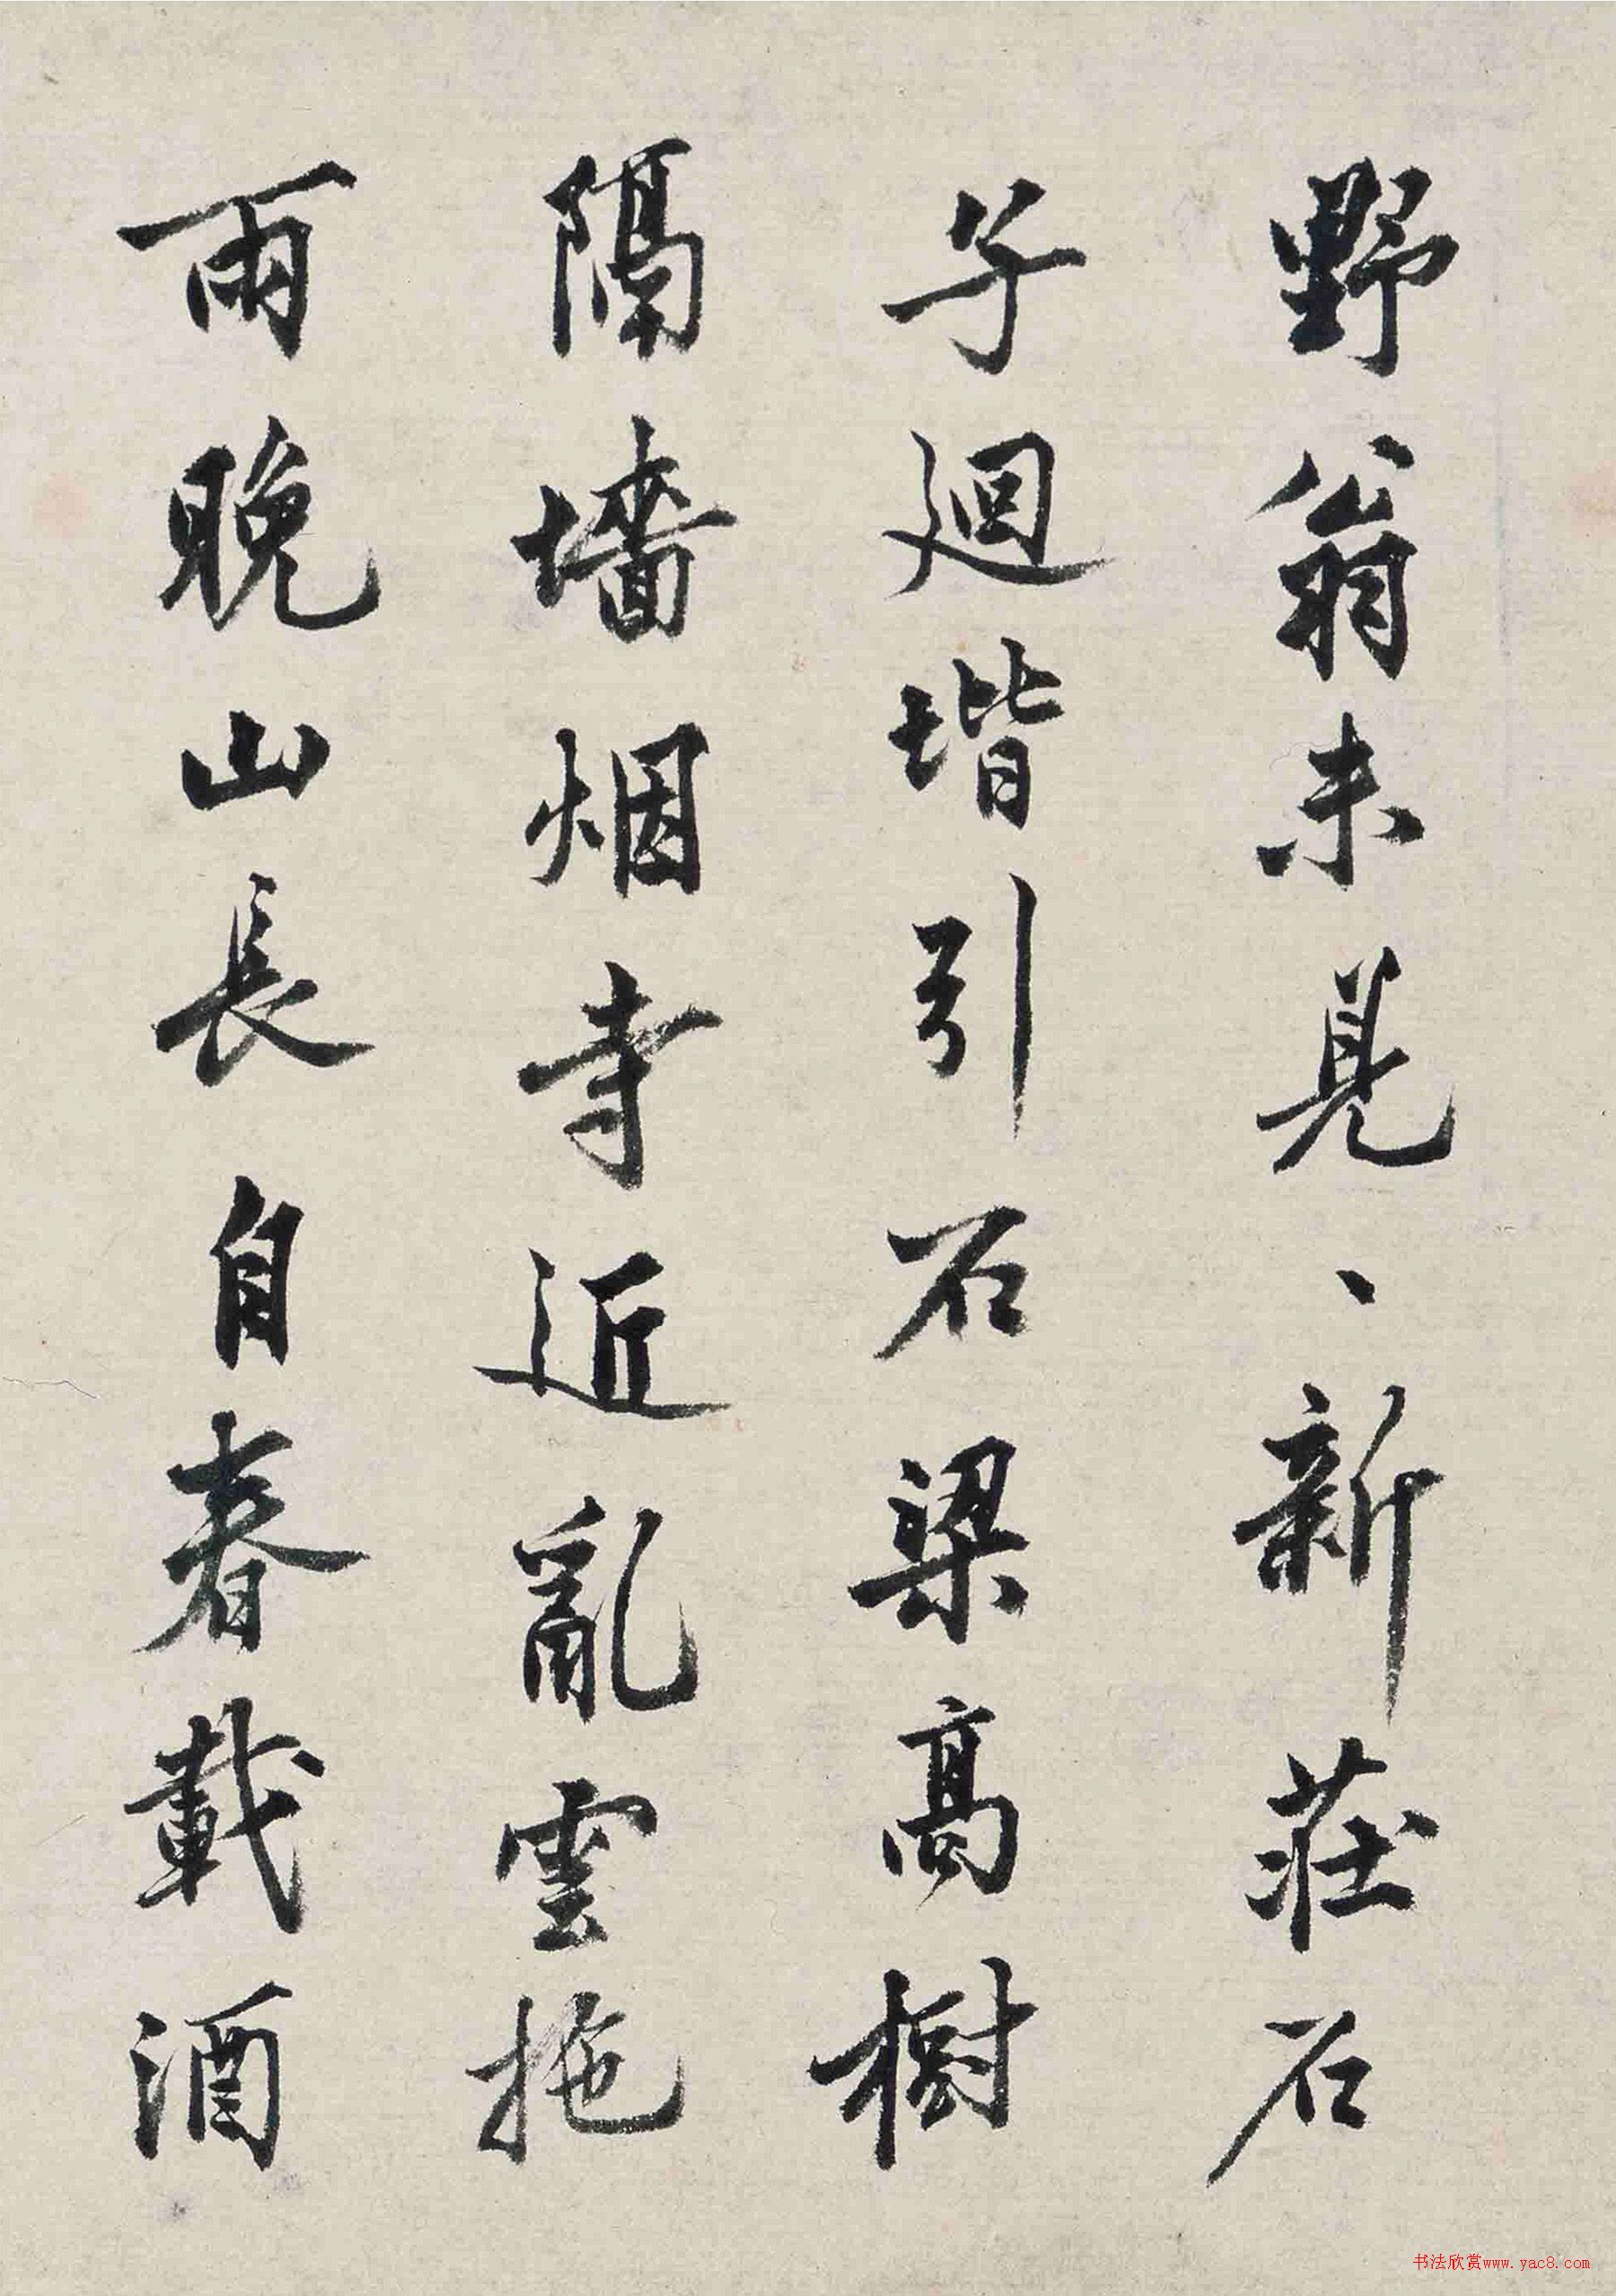 野翁未見、新莊石
子迴堦引石梁高樹
隔墻烟寺近亂雲拖
雨晚山長自春載酒
书法欣赏www.yac8.com